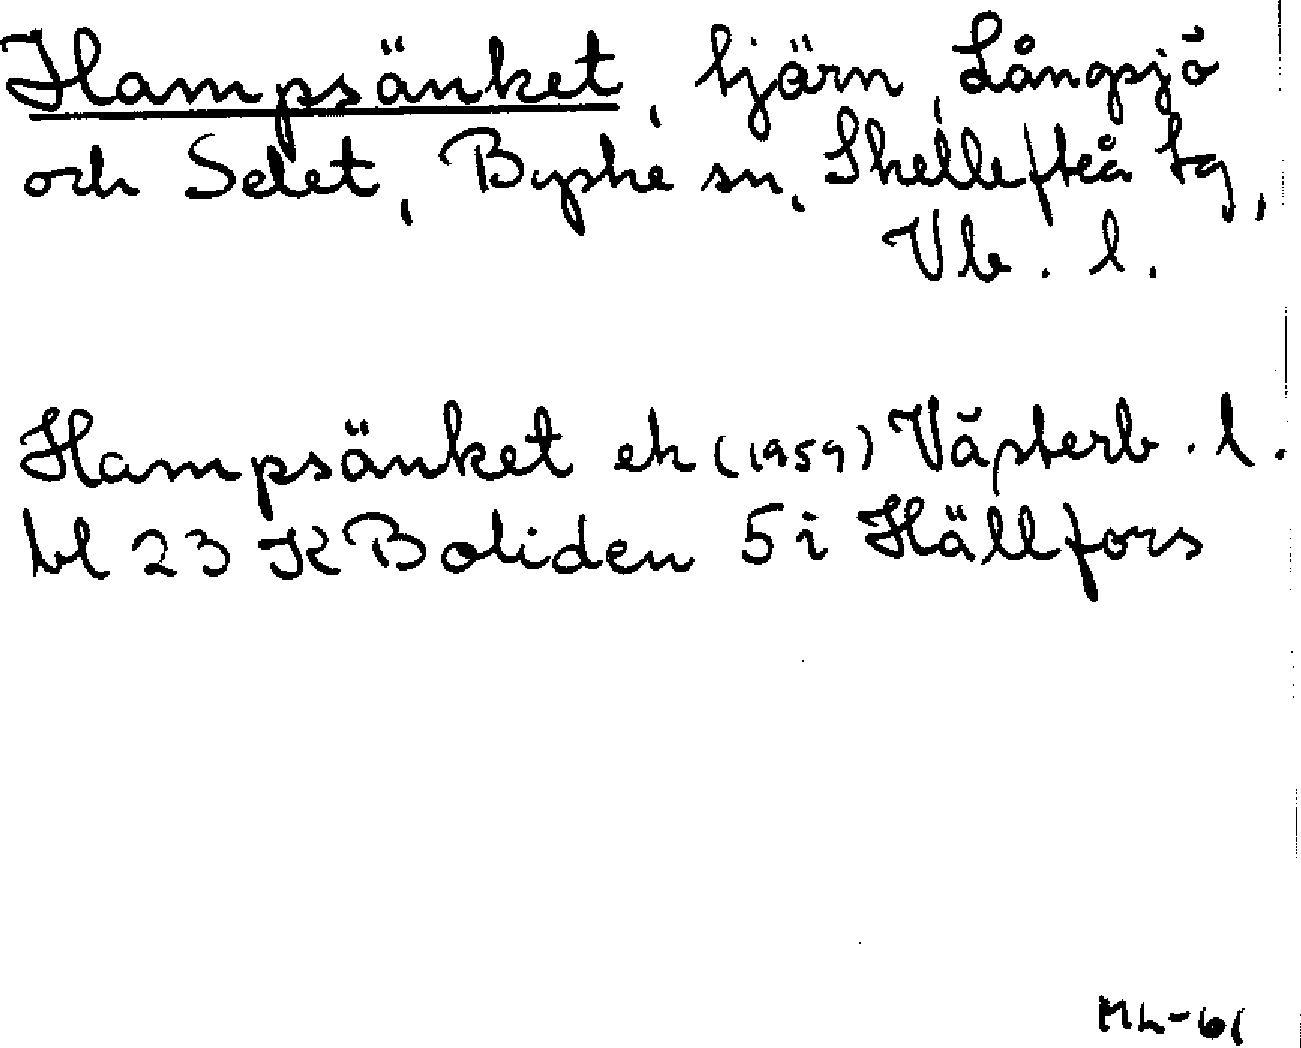 Hampsänket, tjärn, Långsjö
och Selet, Byske sn, Skellefteå tg,
Vb. l.
Hampsänket ek (1959) Västerb. l.
bl 23 K Boliden 5 i Hällfors
ML-61